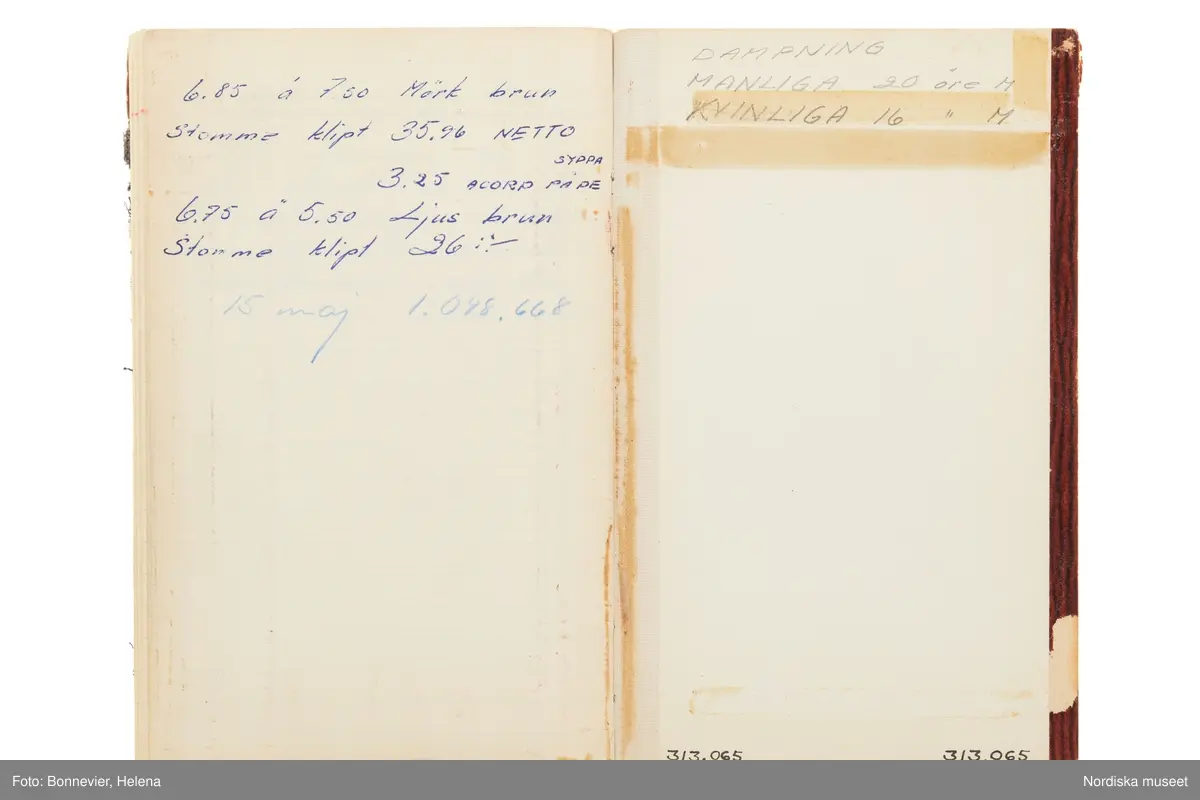 6.85 á 7 50 Mörk brun
Stomme klipt 35.96 NETTO
SYPPA
3.25 ACORD PÅDE
6.75 á 5.50 Ljus brun
Stomme klipt 26:-
15 maj 1.098.668
DAMPNING
MANLIGA 20 öre M
KVINLIGA 16 " M
313.065 313.065
Foto: Bonnevier, Helena
Nordiska museet